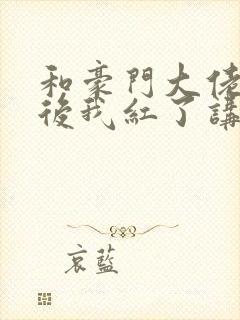 和豪門大佬
後我紅了講
哀藍